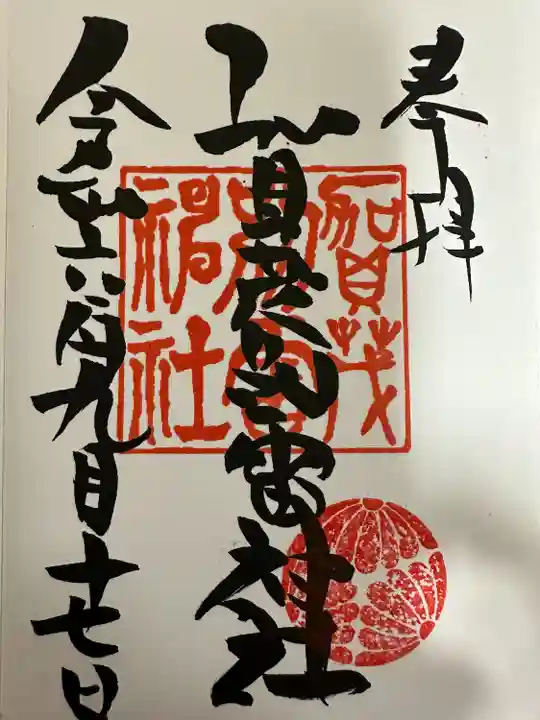 奉拝
賀茂別雷神社
賀茂
別雷
神社
令和六年九月十七日